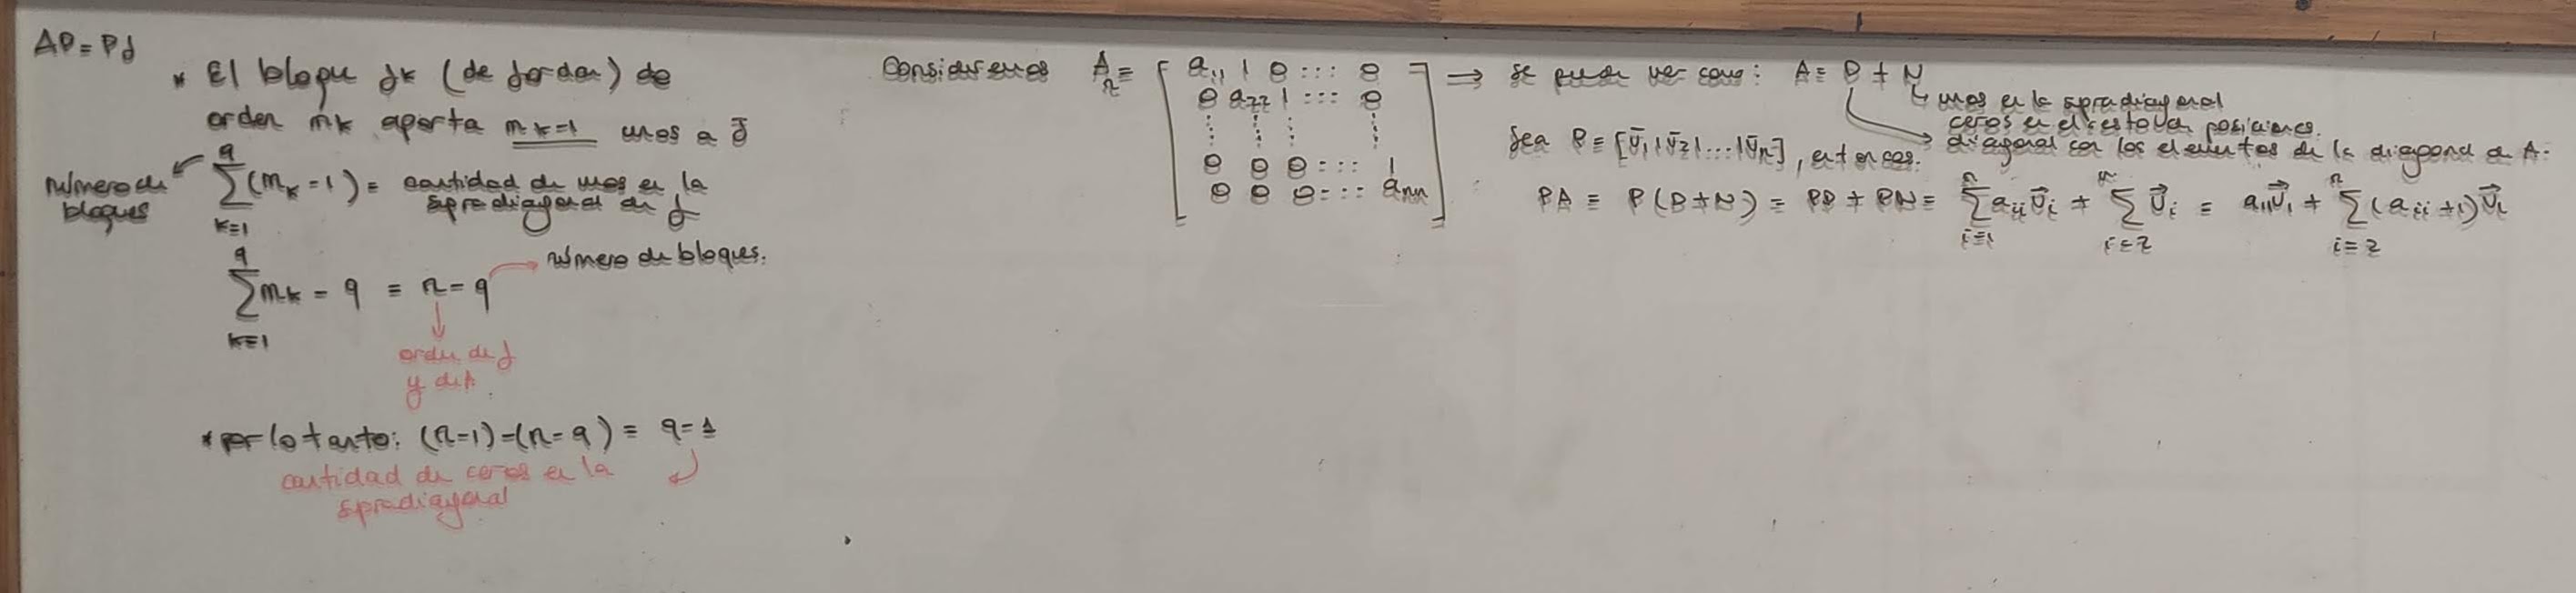 AP = PJ
* El bloque Jk (de Jordan) de
orden mk aporta mk-1 unos a J
número de
bloques
q
∑(mk - 1) = cantidad de unos en la
k=1
spradiagonal de J
q
∑mk - q = n - q
k=1
número de bloques.
orden de J
y de A
* por lo tanto: (n-1)-(n-q) = q-1
cantidad de ceros en la
spradiagonal
Consideremos A =
n
[ a11 1 0 ... 0 ]
0 a22 1 ... 0
⋮ ⋮ ⋮ ⋮
0 0 0 ... 1
0 0 0 ... ann
⟹ se puede ver como: A = D + N
unos en la spradiagonal
ceros en el resto de posiciones.
diagonal con los elementos de la diagonal de A.
Sea P = [v̄1|v̄2|...|v̄n], entonces.
PA = P(D+N) = PD + PN = ∑ⁿᵢ₌₁ aii v⃗i + ∑ⁿᵢ₌₂ v⃗i = a11v⃗1 + ∑ⁿᵢ₌₂ (aii+1)v⃗i